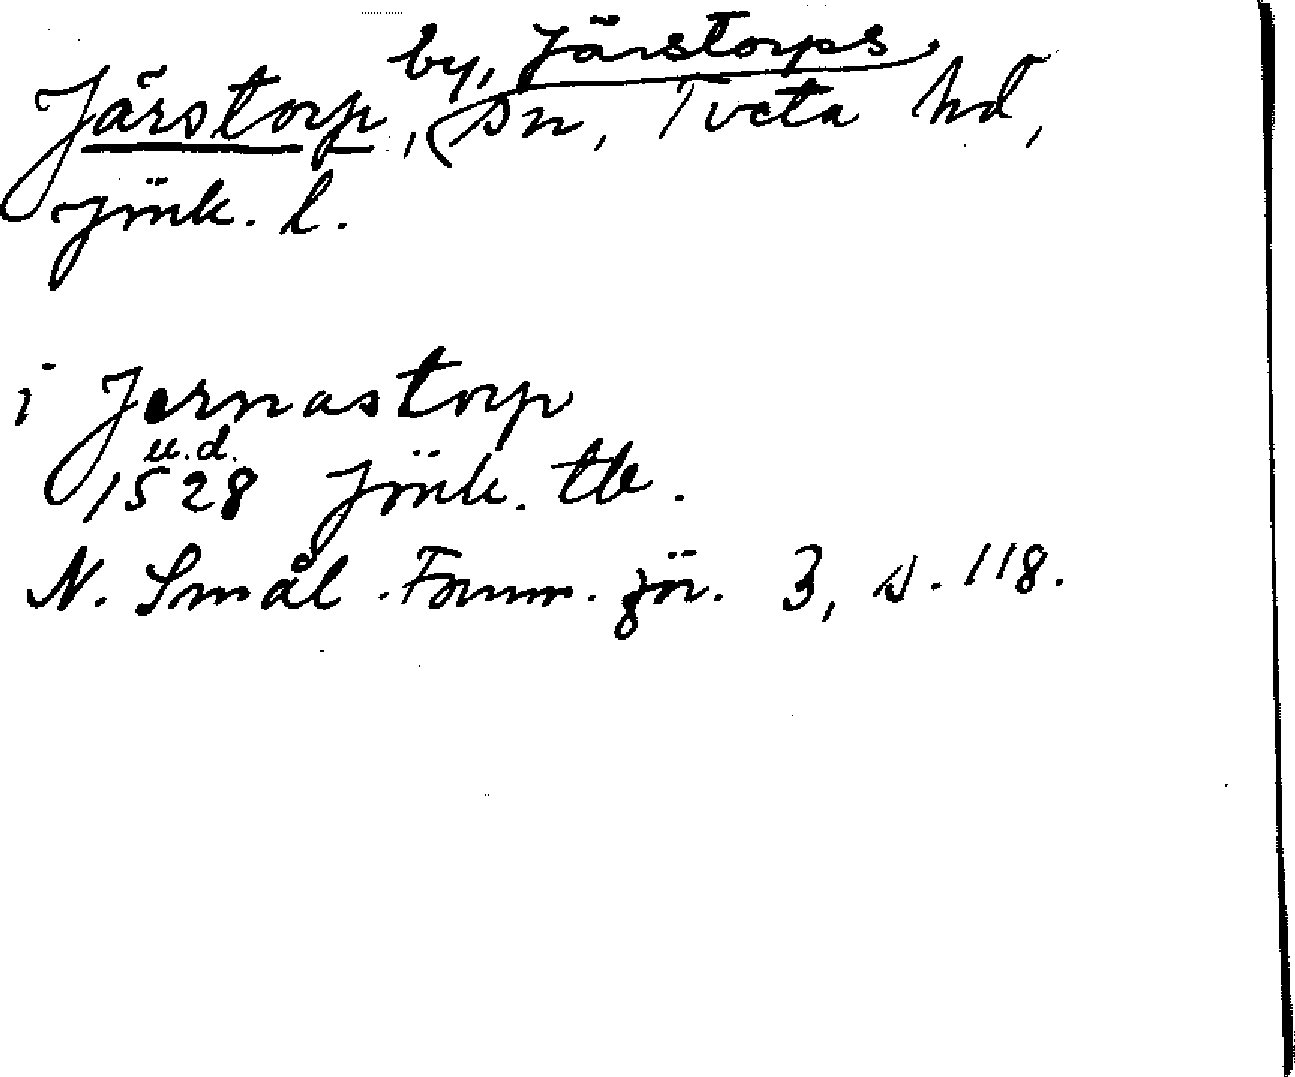 by, Järstorps
Järstorp, sn, Tveta hd,
Jönk. l.
i Jernastorp
u.d.
1528 Jönk. tb.
N. Smål. Fornm. för. 3, s. 118.